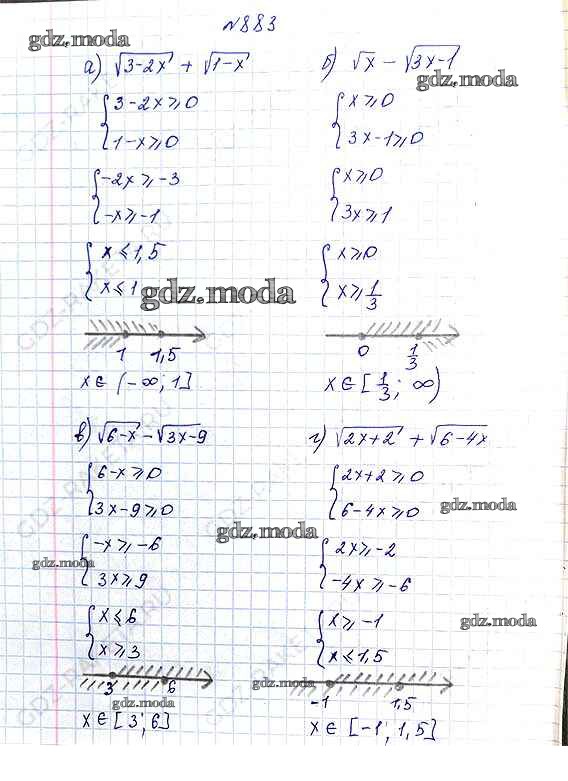 №883
gdz.moda
а) √3-2x + √1-x
{3-2x≥0
1-x≥0
{-2x≥-3
-x≥-1
{x≤1,5
x≤1
gdz.moda
1 1,5
x∈(-∞;1]
б) √x - √3x-1
gdz.moda
{x≥0
3x-1≥0
{x≥0
3x≥1
{x≥0
x≥1/3
0 1/3
x∈[1/3; ∞)
в) √6-x - √3x-9
{6-x≥0
3x-9≥0
gdz.moda
{-x≥-6
3x≥9
gdz.moda
{x≤6
x≥3
3 6
gdz.moda
x∈[3;6]
г) √2x+2 + √6-4x
{2x+2≥0
6-4x≥0
gdz.moda
{2x≥-2
-4x≥-6
{x≥-1
x≤1,5
gdz.moda
gdz.moda
-1 1,5
x∈[-1;1,5]
GDZ-RAKETA.RU